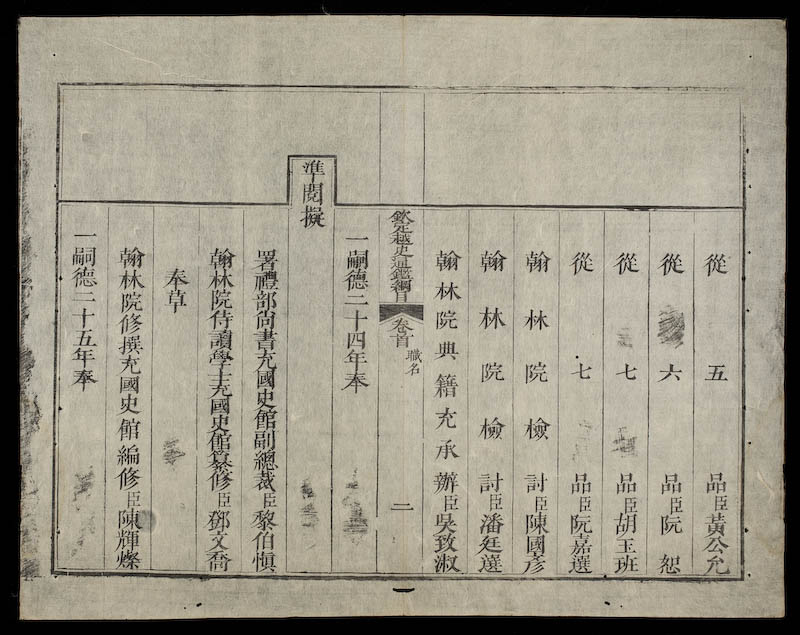 從五品臣黃公允
從六品臣阮恕
從七品臣胡玉班
從七品臣阮嘉選
翰林院檢討臣陳國彥
翰林院檢討臣潘廷薳
翰林院典籍充承辦臣吳致淑
欽定越史通鑑綱目 卷首 職名 二
一嗣德二十四年奉
準閱擬
署禮部尚書充國史館副總裁臣黎伯慎
翰林院侍讀學士充國史館纂修臣鄧文喬
奉草
翰林院修撰充國史館編修臣陳輝燦
一嗣德二十五年奉